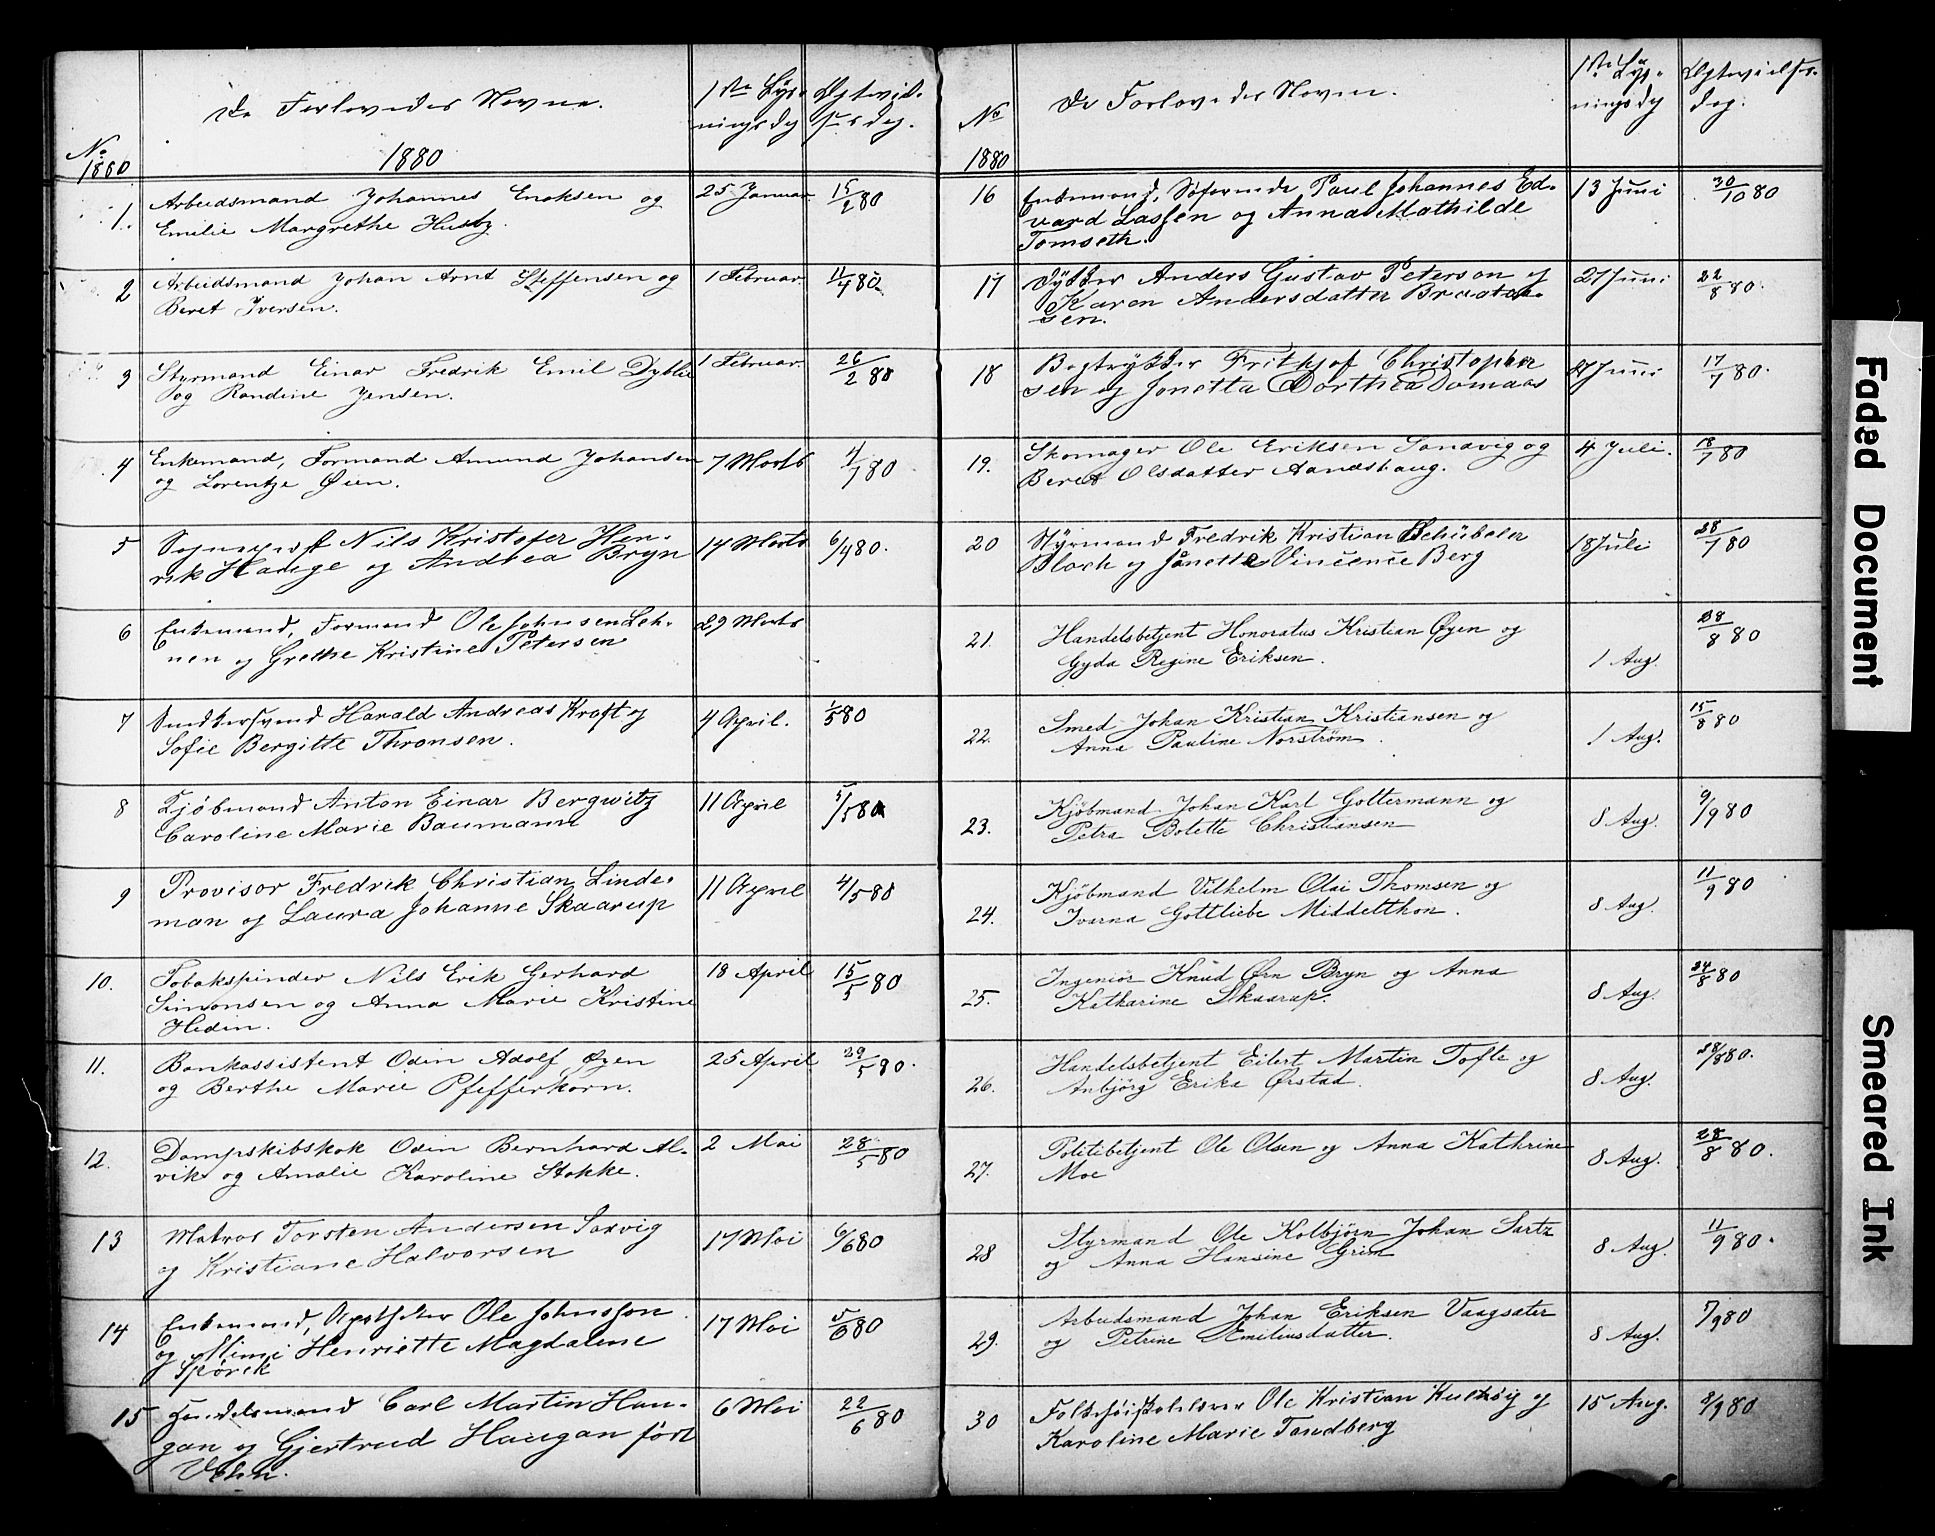 De Forlovedes Navne.
1ste Lys-
ningsdag
Ægtevid-
sesdag.
No
1880
1880
1. Arbeidsmand Johannes Enoksen og 25 Januar 15/2 80
Emilie Margrethe Husby.
2 Arbeidsmand Johan Arnt Steffensen og 1 Februar. 11/4 80.
Beret Iversen.
3 Styrmand Einar Fredrik Emil Dybli 1 Februar. 26/2 80
og Randine Jensen.
4 Enkemand, Formand Amund Johansen 7 Marts 4/7 80
og Lorentze Øien.
5 Sogneprest Nils Kristofer Hen- 14 Marts 6/4 80.
rik Hauge og Andrea Bryn
6 Enkemand, Formand Ole Johnsen Leh- 29 Marts
nen og Grethe Kristine Petersen
7 Snedkersvend Harald Andreas Kroft og 4 April. 1/5 80
Sofie Bergitte Thronsen.
8 Kjöbmand Anton Einar Bergwitz 11 April 5/5 80
Caroline Marie Baumann
9 Provisor Fredrik Christian Linde- 11 April 4/5 80
man og Laura Johanne Skaarup
10. Tobakspinder Nils Erik Gerhard 18 April 15/5 80
Simonsen og Anna Marie Kristine
Hedin.
11. Bankassistent Odin Adolf Øyen 25 April 29/5 80.
og Berthe Marie Pfefferkorn.
12. Dampskibskok Odin Bernhard Al- 2 Mai 28/5 80
vik og Amalie Karoline Stokke.
13 Matros Torsten Andersen Sarvig 17 Mai 6/6 80
og Kristiane Halvorsen
14 Enkemand, Apotheker Ole Johnsson 17 Mai 5/6 80
og Mimi Henriette Magdalene
Spörck
15 Handelsmand Carl Martin Hau- 6 Mai 22/6 80
gan og Gjertrud Haugan født
Vehn.
No
De Forlovedes Navne.
1ste Lys-
ningsdag
Ægtevielses-
dag.
1880
16 Enkemand, Søfarende Paul Johannes Ed- 13 Juni 30/10 80
vard Lassen og Anna Mathilde
Tomseth.
17 Dykker Anders Gustav Peterson og 27 Juni 22/8 80.
Karen Andersdatter Braate-
sen.
18 Bogtrykker Frithjof Christopher 27 Juni 17/7 80.
sen og Jonetta Dorthea Domaas
19. Skomager Ole Eriksen Sandvig og 4 Juli. 18/7 80
Beret Olsdatter Aandshaug.
20 Styrmand Fredrik Kristian Schübeler 18 Juli 28/7 80
Bloch og Janette Vincence Berg
21. Handelsbetjent Honoratus Kristian Øyen og 1 Aug. 28/8 80
Gyda Regine Eriksen.
22. Smed Johan Kristian Kristiansen og 1 Aug. 15/8 80
Anna Pauline Norström.
23. Kjöbmand Johan Karl Gottermann og 8 Aug. 9/9 80
Petra Bolette Christiansen
24. Kjöbmand Vilhelm Olai Thomsen og 8 Aug. 11/9 80
Ivarna Gottliebe Middelthon.
25. Ingeniör Knud Ørn Bryn og Anna 8 Aug. 24/8 80
Katharine Skaarup.
26. Handelsbetjent Eilert Martin Tofte og 8 Aug. 28/8 80.
Anbjörg Erika Ørstad.
27. Politibetjent Ole Olsen og Anna Kathrine 8 Aug. 28/8 80.
Moe
28 Styrmand Ole Kolbjörn Johan Sartz 8 Aug. 11/9 80.
og Anna Hansine Grim
29. Arbeidsmand Johan Eriksen Vaagsæter 8 Aug. 7/9 80
og Petrine Emiliusdatter.
30 Folkehöiskolelærer Ole Kristian Kulhöig og 15 Aug. 8/9 80
Karoline Marie Tandberg
Faded Document
Smeared Ink